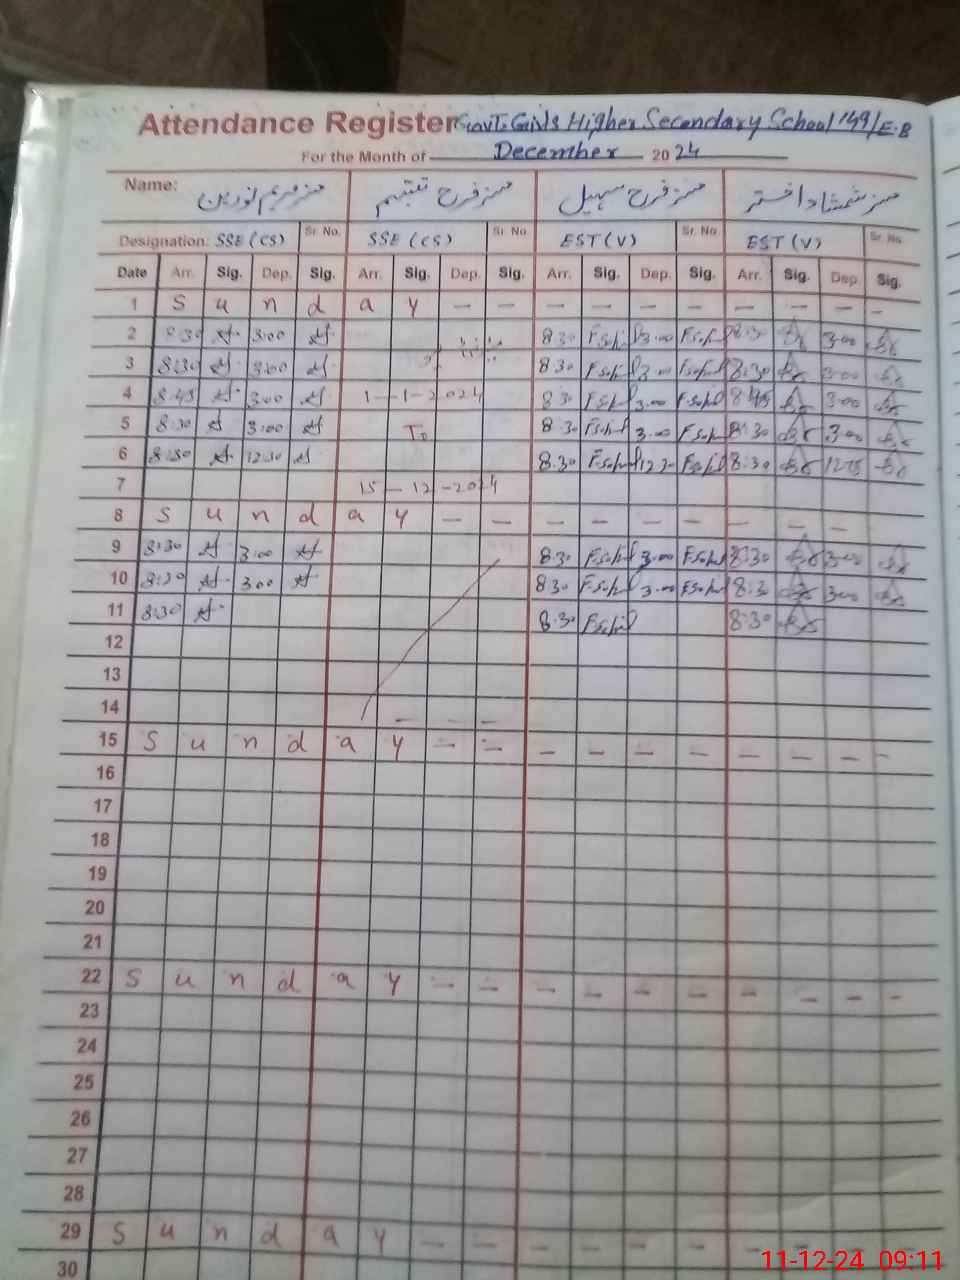 Attendance Register Govt. Girls Higher Secondary School 149/E.B
For the Month of December 2024
Name: مسز مریم نورین مسز فرح تبسم مسز فرح سہیل مسز شمشاد اختر
Designation: SSE (CS) Sr. No. SSE (CS) Sr. No. EST (V) Sr. No EST (V) Sr. No.
Date Arr. Sig. Dep. Sig. Arr. Sig. Dep. Sig. Arr. Sig. Dep. Sig. Arr. Sig. Dep. Sig.
1 S u n d a y — — — — — — — — — —
2 8:30 3:00 8 30 3.00 8:30 300
3 8:30 3:00 8 30 3.00 8:30 300
4 8:45 3:00 1-1-2024 8 30 3.00 8:45 300
5 8:30 3:00 To 8.30 3.00 8:30 300
6 8:30 12:30 8.30 12 30 8:30 1215
7 15-12-2024
8 S u n d a y — — — — — — — — —
9 8:30 3:00 8.30 3.00 8:30 300
10 8:30 300 8 30 3.00 8:30 300
11 8:30 8.30 8:30
12
13
14 — — —
15 S u n d a y — — — — — — — — — —
16
17
18
19
20
21
22 S u n d a y — — — — — — — — — —
23
24
25
26
27
28
29 S u n d a y — — — — — — — — — —
30
11-12-24 09:11